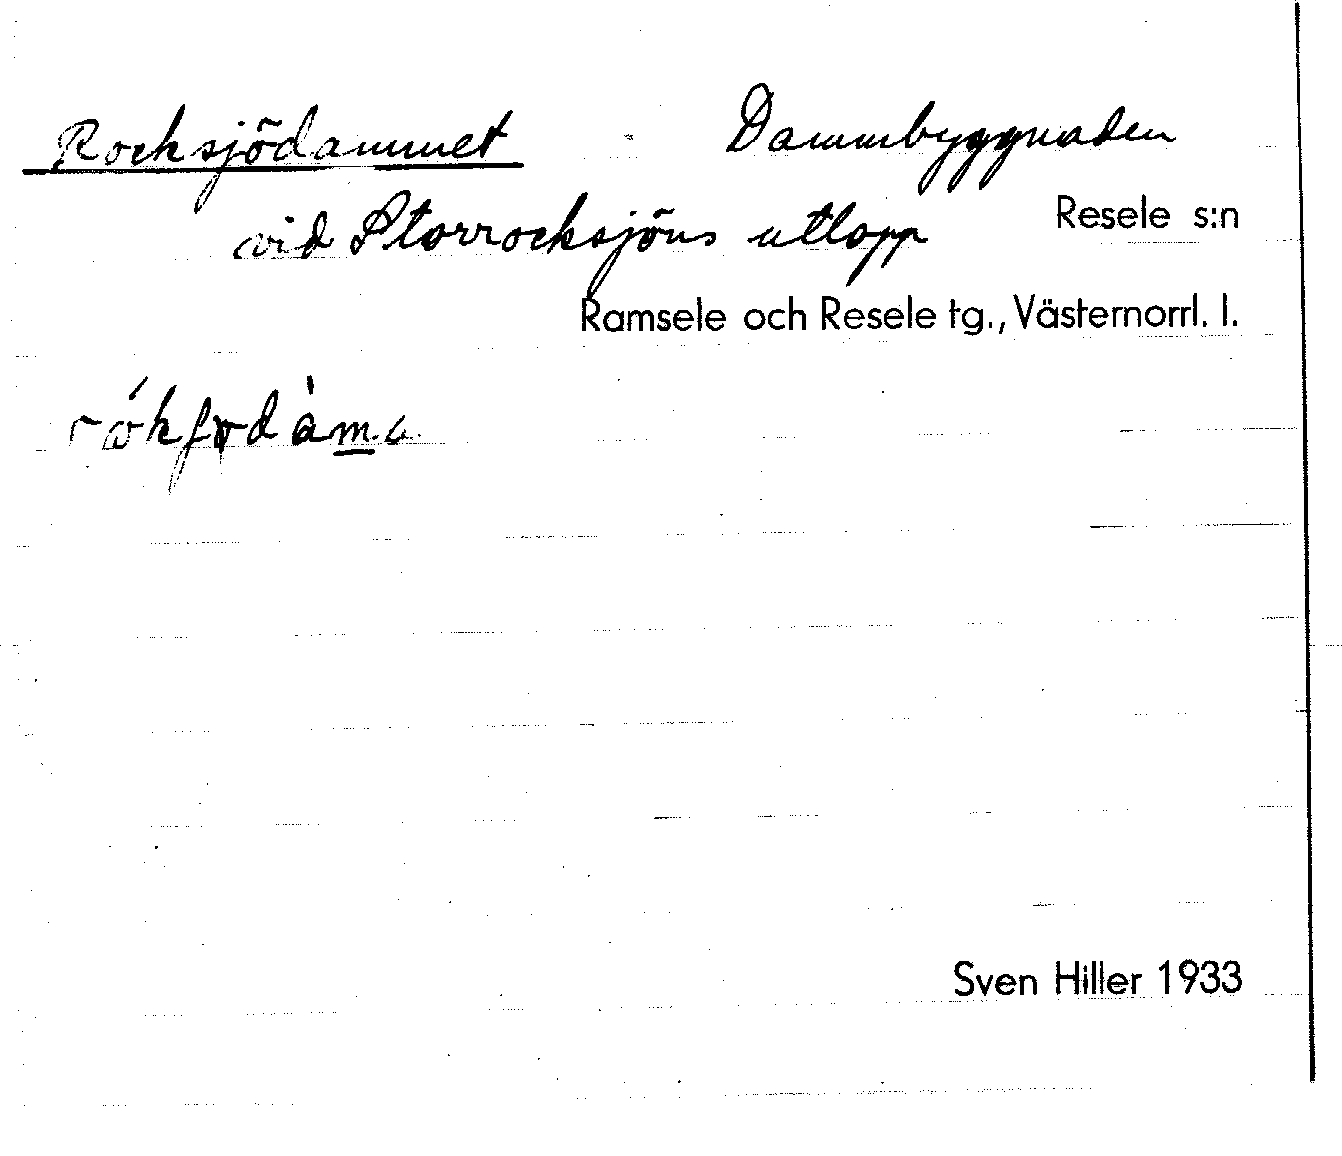 Rocksjödammet - Dammbyggnaden
vid Storrocksjöns utlopp
Resele s:n
Ramsele och Resele tg., Västernorrl. l.
Sven Hiller 1933